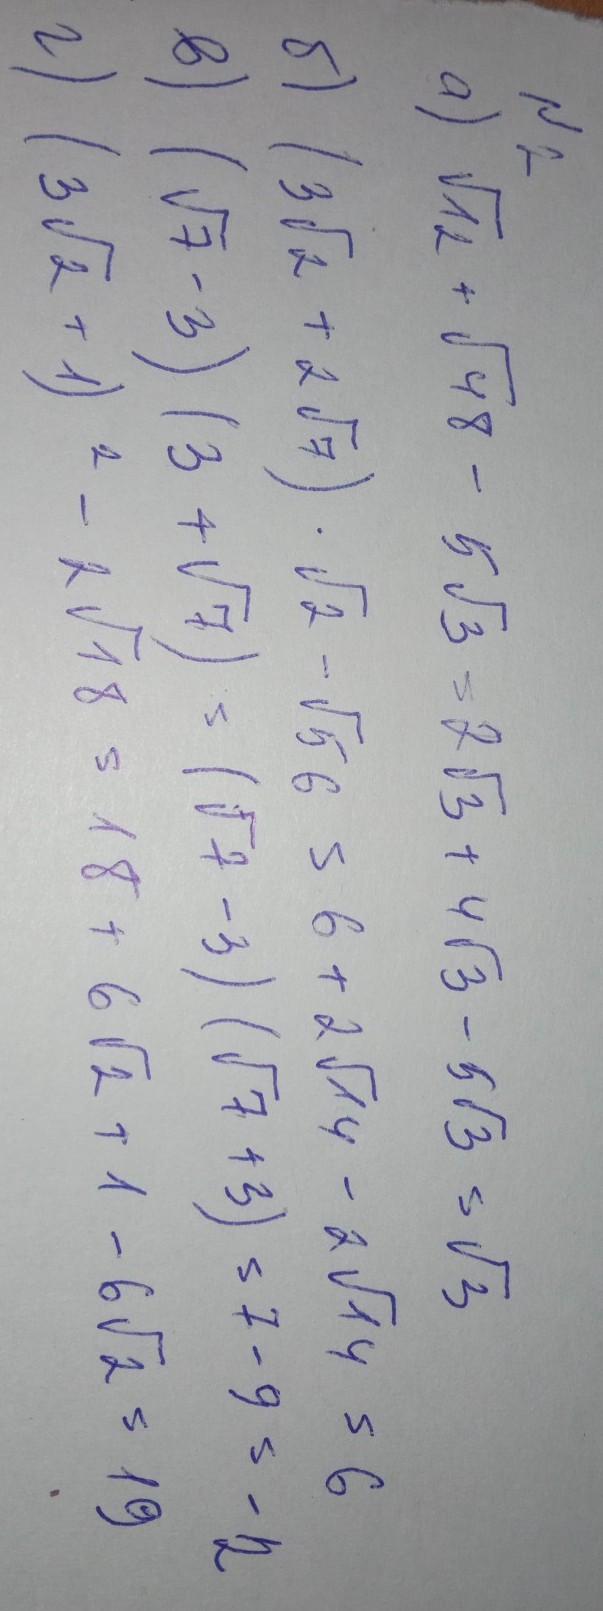 №2
а) √12 + √48 - 5√3 = 2√3 + 4√3 - 5√3 = √3
б) (3√2 + 2√7) · √2 - √56 = 6 + 2√14 - 2√14 = 6
в) (√7 - 3) (3 + √7) = (√7 - 3) (√7 + 3) = 7 - 9 = -2
г) (3√2 + 1)² - 2√18 = 18 + 6√2 + 1 - 6√2 = 19